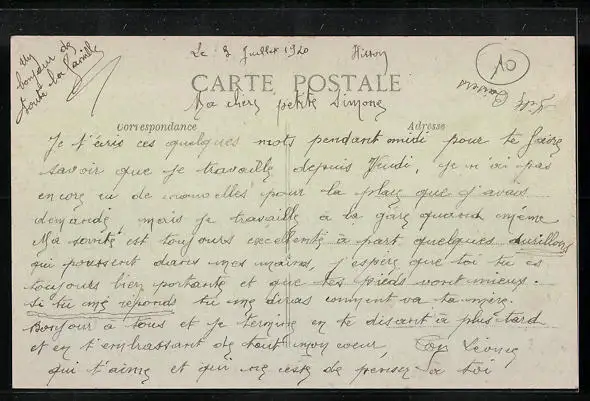 Un
bonjour de
toute la famille
Le 8 Juillet 1920 Hirson
10
CARTE POSTALE
Ma chère petite Simone
Correspondance Adresse
Je t'écris ces quelques mots pendant midi pour te faire
savoir que je travaille depuis Jeudi, je n'ai pas
encore eu de nouvelles pour la place que j'avais
demandé, mais je travaille à la gare quand même
Ma santé est toujours excellente à part quelques durillons
qui poussent dans mes mains, j'espère que toi tu es
toujours bien portante et que tes pieds vont mieux.
Si tu me réponds tu me diras comment va ta mère.
Bonjour à tous et je termine en te disant à plus tard
et en t'embrassant de tout mon coeur. Ton Léonce
qui t'aime et qui ne cesse de penser à toi